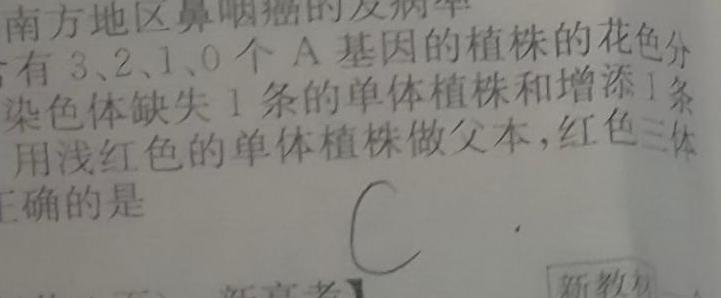 南方地区鼻咽癌的发病率
有 3、2、1、0 个 A 基因的植株的花色分
染色体缺失 1 条的单体植株和增添 1 条
用浅红色的单体植株做父本,红色三体
正确的是
C
新高考】
新教材